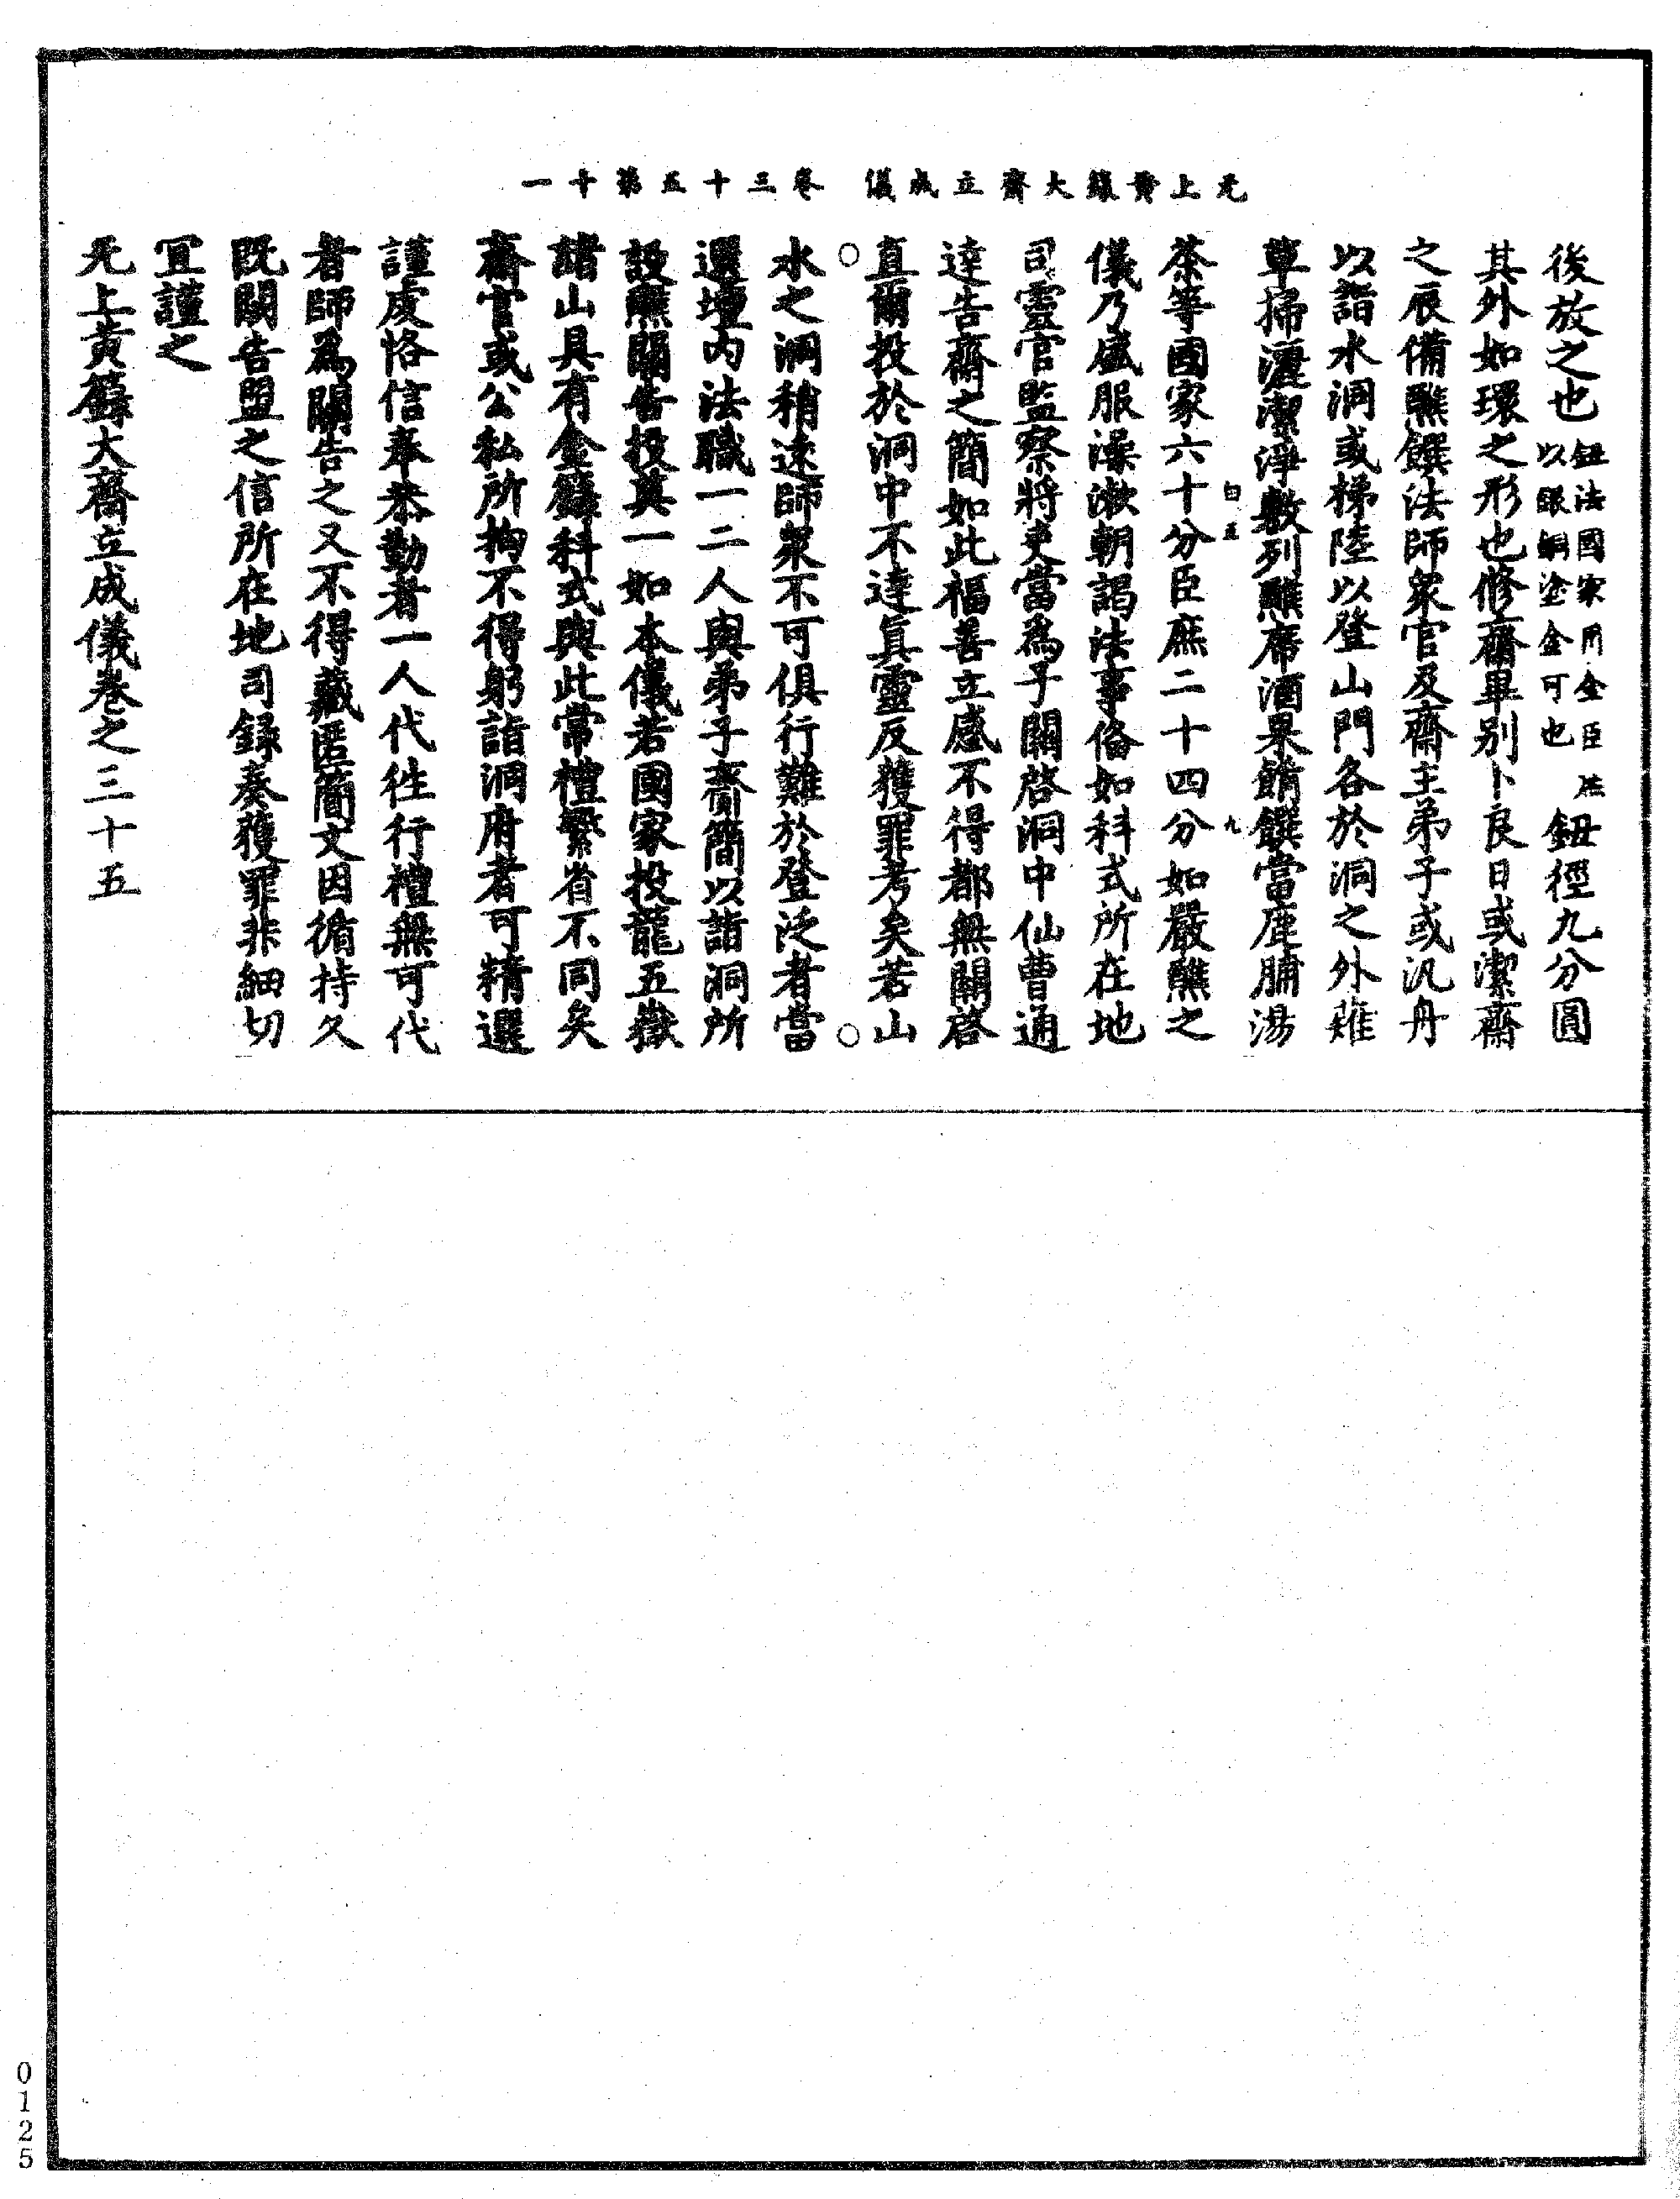 无上黃籙大齋立成儀 卷三十五第十一
後放之也鈕法國家用金臣庶以銀銅塗金可也鈕徑九分圓
其外如環之形也修齋畢别卜良日或潔齋
之辰備醮饌法師衆官及齋主弟子或汎舟
以詣水洞或梯陸以登山門各於洞之外薙
草掃灑潔淨敷列醮席酒果餚饌當鹿脯湯
白五 九
茶等國家六十分臣庶二十四分如嚴醮之
儀乃盛服澡漱朝謁法事俻如科式所在地
司靈官監察將吏當爲子關啓洞中仙曹通
達告齋之簡如此福善立感不得都無關啓
直爾投於洞中不達真靈反獲罪考矣若山
○ ○
水之洞稍遠師衆不可俱行難於登泛者當
選壇内法職一二人與弟子賫簡以詣洞所
設醮關告投奠一如本儀若國家投龍五嶽
諸山具有金籙科式與此常禮繁省不同矣
齋官或公私所拘不得躬詣洞府者可精選
謹虔恪信奉恭勤者一人代徃行禮無可代
者師爲關告之又不得藏匿簡文因循持久
既關告盟之信所在地司録奏獲罪非細切
宜謹之
无上黃籙大齋立成儀卷之三十五
0125